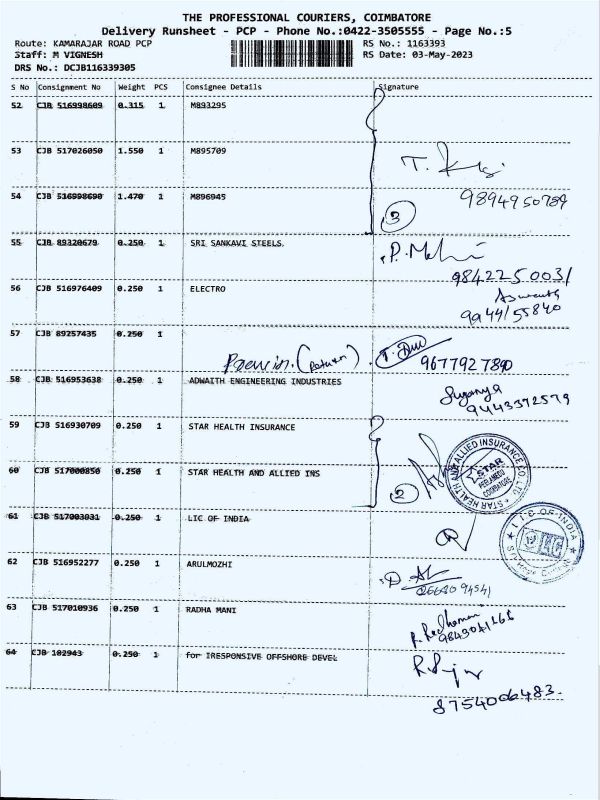 THE PROFESSIONAL COURIERS, COIMBATORE
Delivery Runsheet - PCP - Phone No.:0422-3505555 - Page No.:5
Route: KAMARAJAR ROAD PCP RS No.: 1163393
Staff: M VIGNESH RS Date: 03-May-2023
DRS No.: DCJB116339305
S No Consignment No Weight PCS Consignee Details Signature
52 CJB 516998609 0.315 1 M893295
53 CJB 517026050 1.550 1 M895709
T.
54 CJB 516998690 1.470 1 M896945
9894950789
3
55 CJB 89320679 0.250 1 SRI SANKAVI STEELS
9842250031
56 CJB 516976409 0.250 1 ELECTRO
9944155840
57 CJB 89257435 0.250 1
(Return) 9677927890
58 CJB 516953638 0.250 1 ADWAITH ENGINEERING INDUSTRIES
Suganya
9443372579
59 CJB 516930709 0.250 1 STAR HEALTH INSURANCE
60 CJB 517000850 0.250 1 STAR HEALTH AND ALLIED INS
2
STAR HEALTH AND ALLIED INSURANCE CO. LTD
STAR
PEELAMEDU
COIMBATORE
61 CJB 517003031 0.250 1 LIC OF INDIA
OF INDIA
62 CJB 516952277 0.250 1 ARULMOZHI
63 CJB 517010936 0.250 1 RADHA MANI
64 CJB 102943 0.250 1 for IRESPONSIVE OFFSHORE DEVEL
8754006483